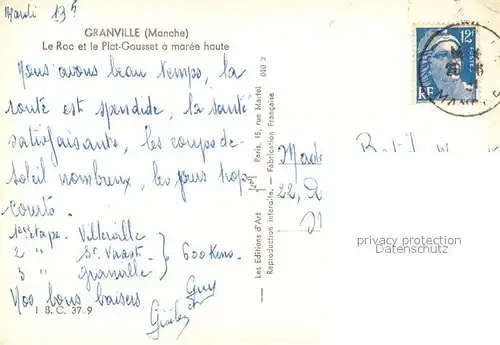 Mardi 13h
GRANVILLE (Manche)
Le Roc et le Plat-Gousset à marée haute
Nous avons beau temps, la
route est spendide, la santé
satisfaisante, les coups de
soleil nombreux, les jours trop
courts.
1ère étape. Villerville
2 " St. Vaast
3 " Granville
600 Kms.
Nos bons baisers.
Guy
et
Gisèle
I B. C. 37 9
010 2
Les Editions d'Art Paris, 15, rue Martel
Reproduction interdite. - Fabrication Française
Mad
22,
12F
POSTES
RF
MANCHE
privacy protection
Datenschutz